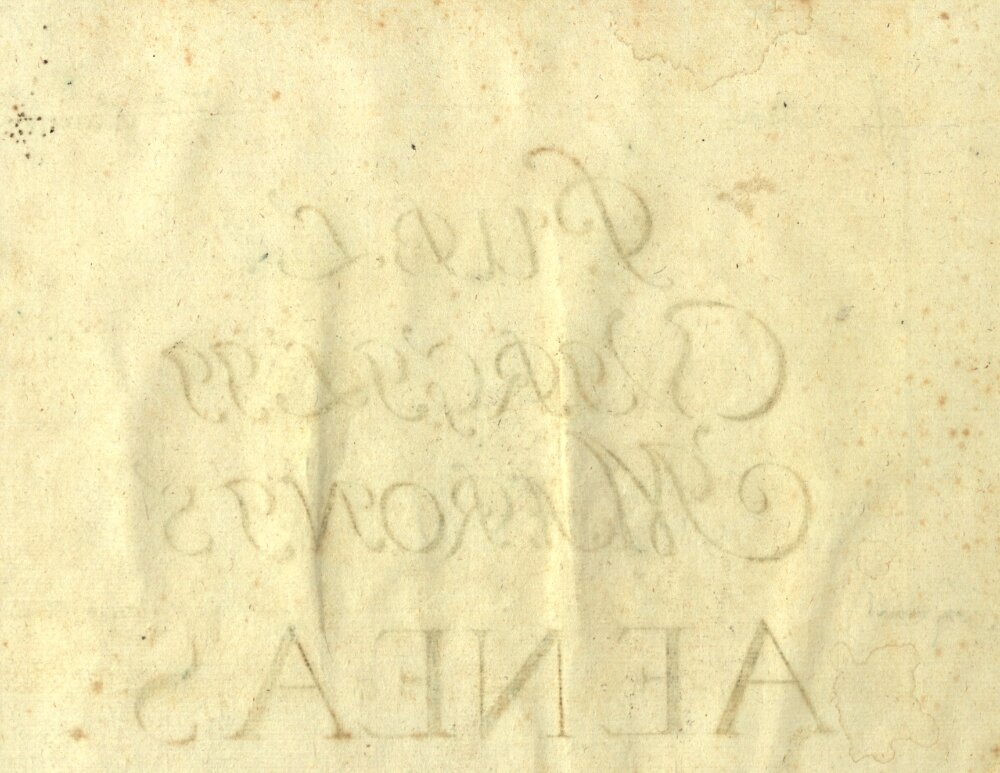 PUBL
VIRGILII
MARONIS
AENEAS